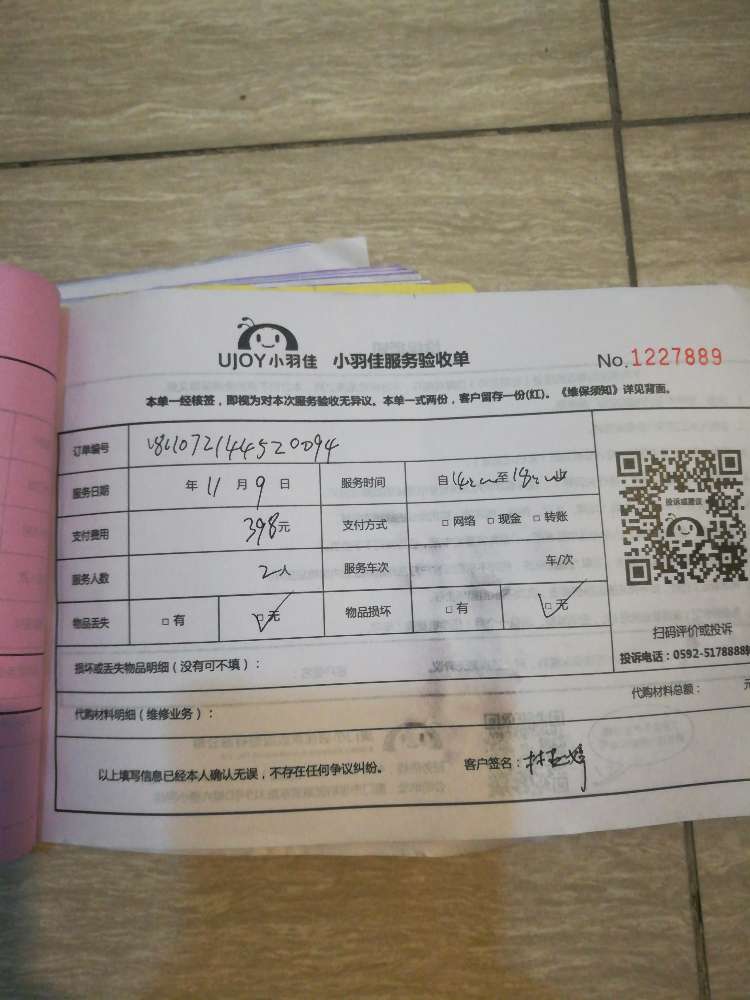 UJOY小羽佳 小羽佳服务验收单 No.1227889
本单一经核签，即视为对本次服务验收无异议。本单一式两份，客户留存一份(红)。《维保须知》详见背面。
订单编号
服务日期 年 11 月 9 日 服务时间 自 至
支付费用 398元 支付方式 □ 网络 □ 现金 □ 转账
服务人数 2人 服务车次 车/次
物品丢失 □ 有 □ 无 物品损坏 □ 有 □ 无
投诉或建议
扫码评价或投诉
投诉电话：0592-5178888转
损坏或丢失物品明细（没有可不填）：
代购材料明细（维修业务）： 代购材料总额： 元
以上填写信息已经本人确认无误，不存在任何争议纠纷。 客户签名：林